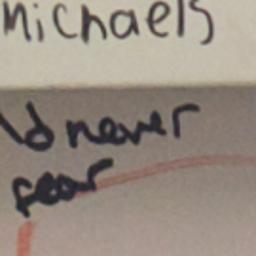 Michaels
never
fear